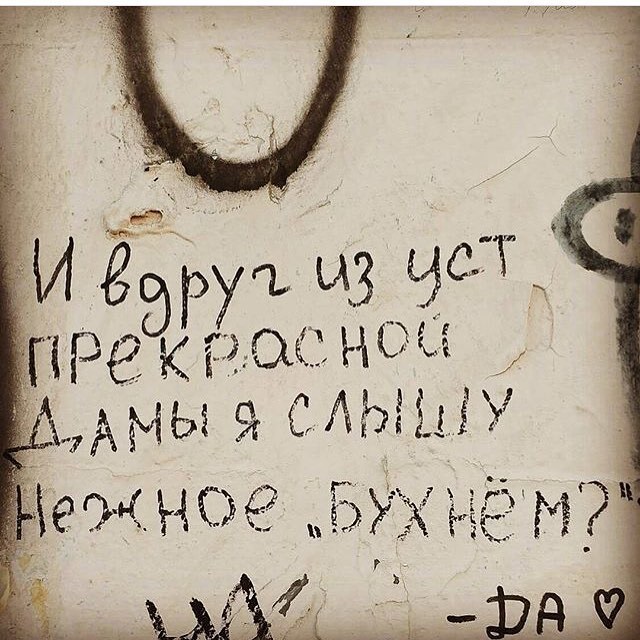 И вдруг из уст
прекрасной
Дамы я слышу
нежное „Бухнём?“
– DA ♡